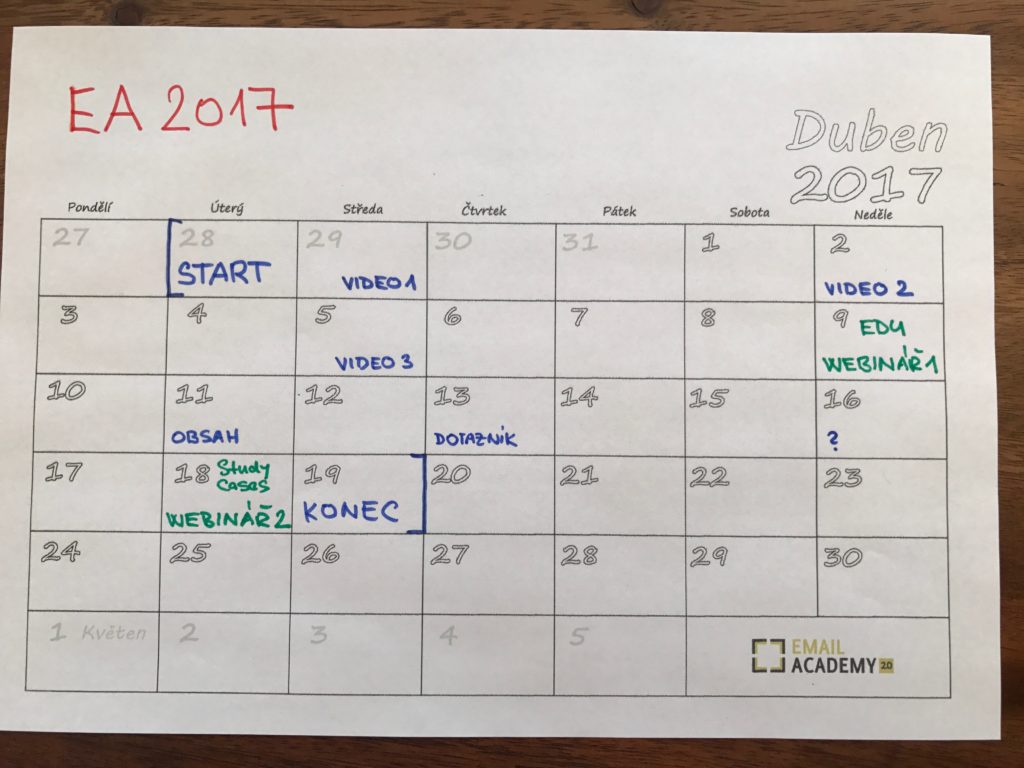 EA 2017
Duben
2017
Pondělí Úterý Středa Čtvrtek Pátek Sobota Neděle
27 28 29 30 31 1 2
START VIDEO 1 VIDEO 2
3 4 5 6 7 8 9 EDU
VIDEO 3 WEBINÁŘ 1
10 11 12 13 14 15 16
OBSAH DOTAZNÍK ?
17 18 Study 19 20 21 22 23
Casas
WEBINÁŘ 2 KONEC
24 25 26 27 28 29 30
1 Květen 2 3 4 5
EMAIL
ACADEMY 2.0